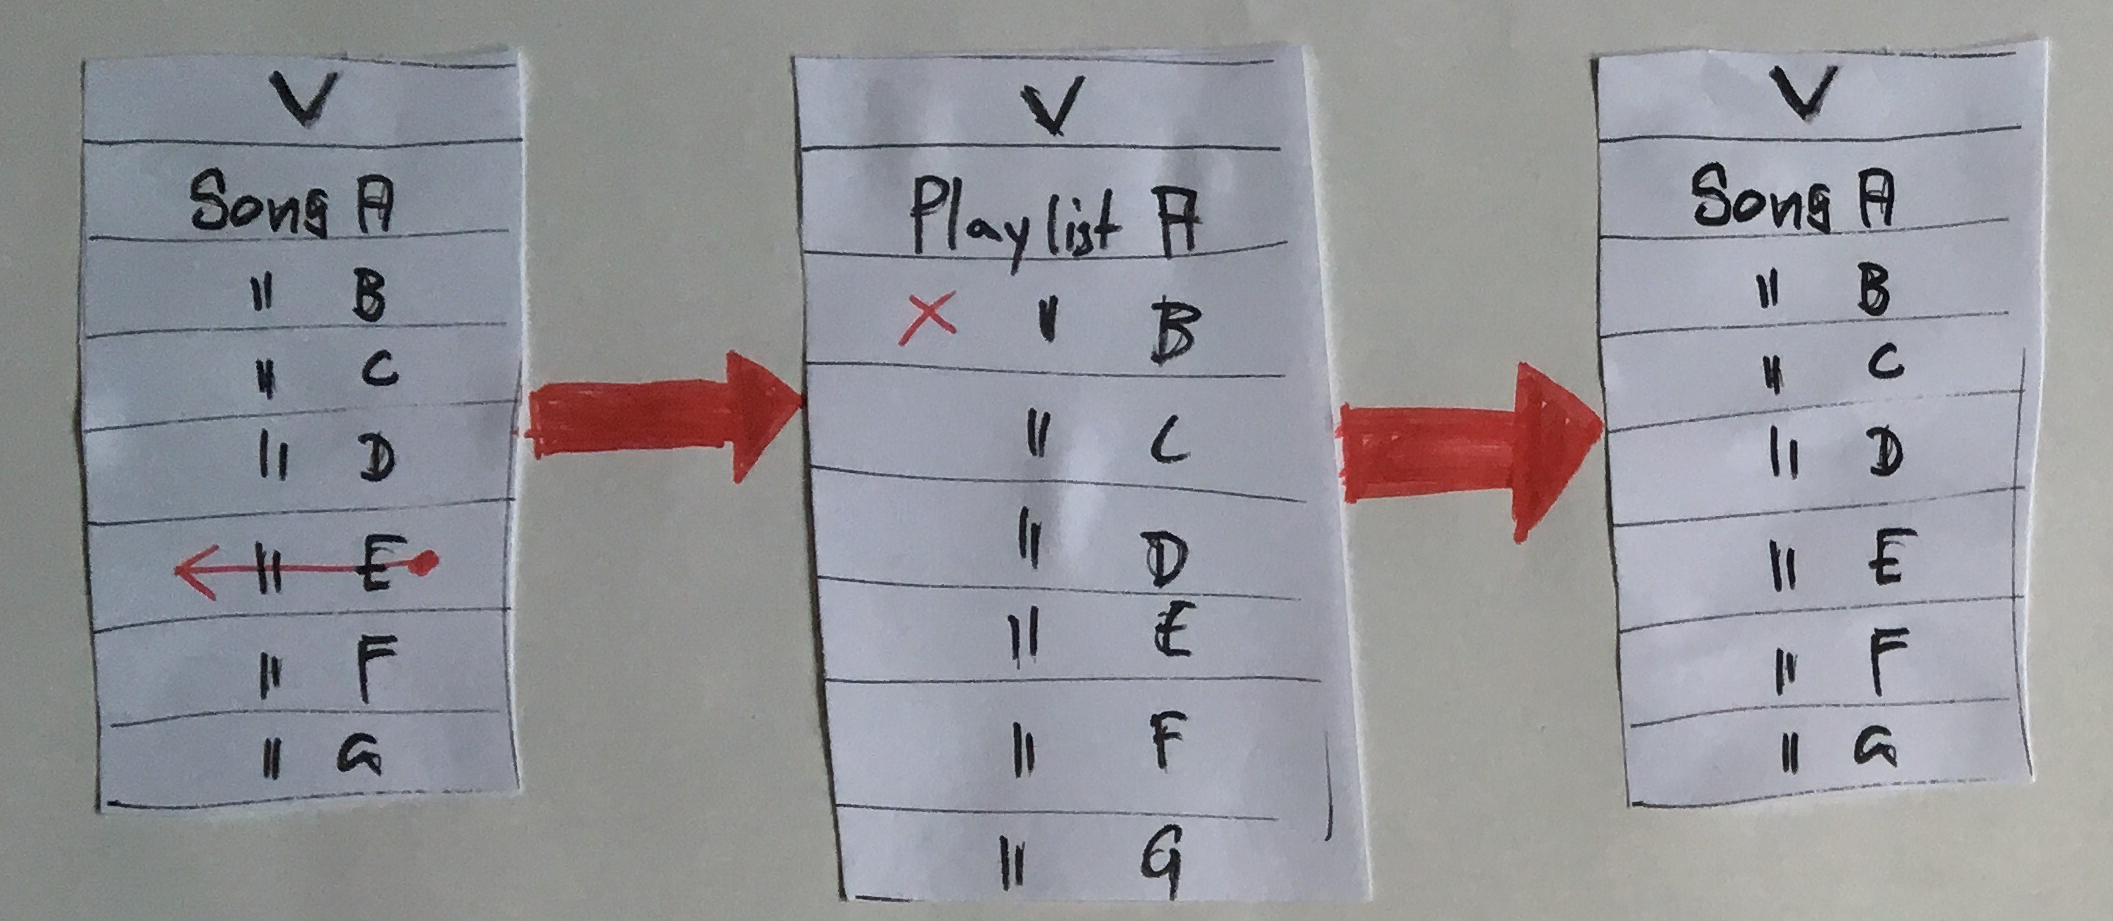 V
Song A
" B
" C
" D
" E
" F
" G
V
Playlist A
X " B
" C
" D
" E
" F
" G
V
Song A
" B
" C
" D
" E
" F
" G